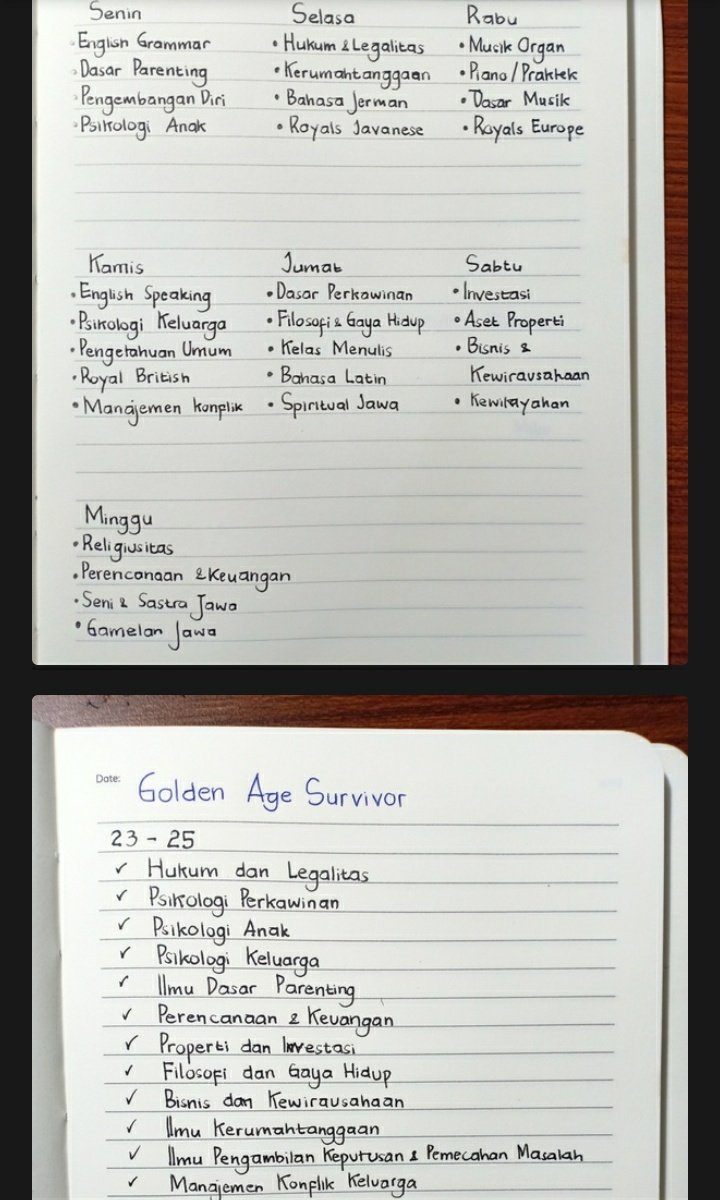 Senin
English Grammar
Dasar Parenting
Pengembangan Diri
Psikologi Anak
Selasa
Hukum & Legalitas
Kerumahtanggaan
Bahasa Jerman
Royals Javanese
Rabu
Musik Organ
Piano/Praktek
Dasar Musik
Royals Europe
Kamis
English Speaking
Psikologi Keluarga
Pengetahuan Umum
Royal British
Manajemen konflik
Jumat
Dasar Perkawinan
Filosofi & Gaya Hidup
Kelas Menulis
Bahasa Latin
Spiritual Jawa
Sabtu
Investasi
Aset Properti
Bisnis &
Kewirausahaan
Kewilayahan
Minggu
Religiusitas
Perencanaan & Keuangan
Seni & Sastra Jawa
Gamelan Jawa
Date: Golden Age Survivor
23 - 25
✓ Hukum dan Legalitas
✓ Psikologi Perkawinan
✓ Psikologi Anak
✓ Psikologi Keluarga
✓ Ilmu Dasar Parenting
✓ Perencanaan & Keuangan
✓ Properti dan Investasi
✓ Filosofi dan Gaya Hidup
✓ Bisnis dan Kewirausahaan
✓ Ilmu Kerumahtanggaan
✓ Ilmu Pengambilan Keputusan & Pemecahan Masalah
✓ Manajemen Konflik Keluarga